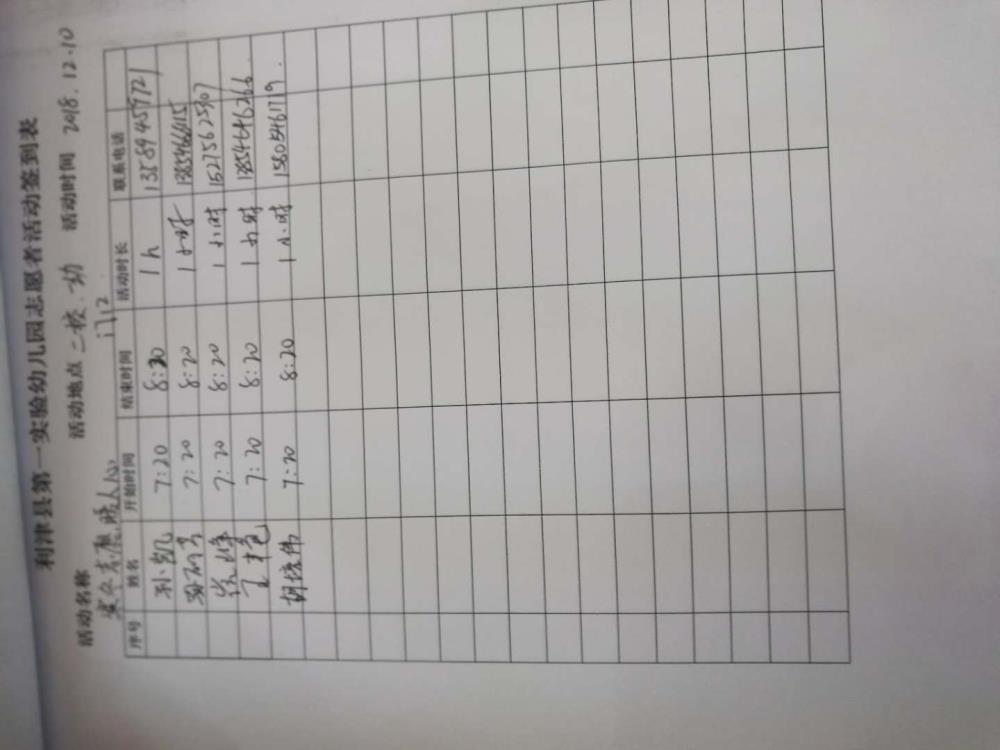 利津县第一实验幼儿园志愿者活动签到表
活动名称 活动地点 二校.一幼门口 活动时间 2018.12.10
志愿暖人心
序号 姓名 开始时间 结束时间 活动时长 联系电话
7:20 8:20 1h 13589945972
7:20 8:20 1小时
7:20 8:20 1小时 15275625307
王艳 7:20 8:20 1小时
胡培伟 7:20 8:20 1小时 15805461719.